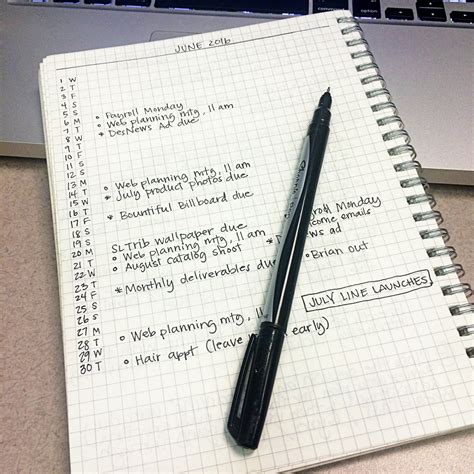 JUNE 2016
1 W
2 T
3 F
4 S
5 S
6 M Payroll Monday
7 T Web planning mtg, 11 am
8 W * DesNews Ad due
9 T
10 F
11 S
12 S
13 M
14 T Web planning mtg, 11 am
15 W * July product photos due
16 T
17 F * Bountiful Billboard due
18 S
19 S
20 M SLTrib wallpaper due Payroll Monday
21 T Web planning mtg, 11 am emails
22 W August catalog shoot * ad
23 T Brian out
24 F * Monthly deliverables due
25 S
26 S
27 M JULY LINE LAUNCHES
28 T Web planning mtg, 11
29 W
30 T Hair appt (leave early)